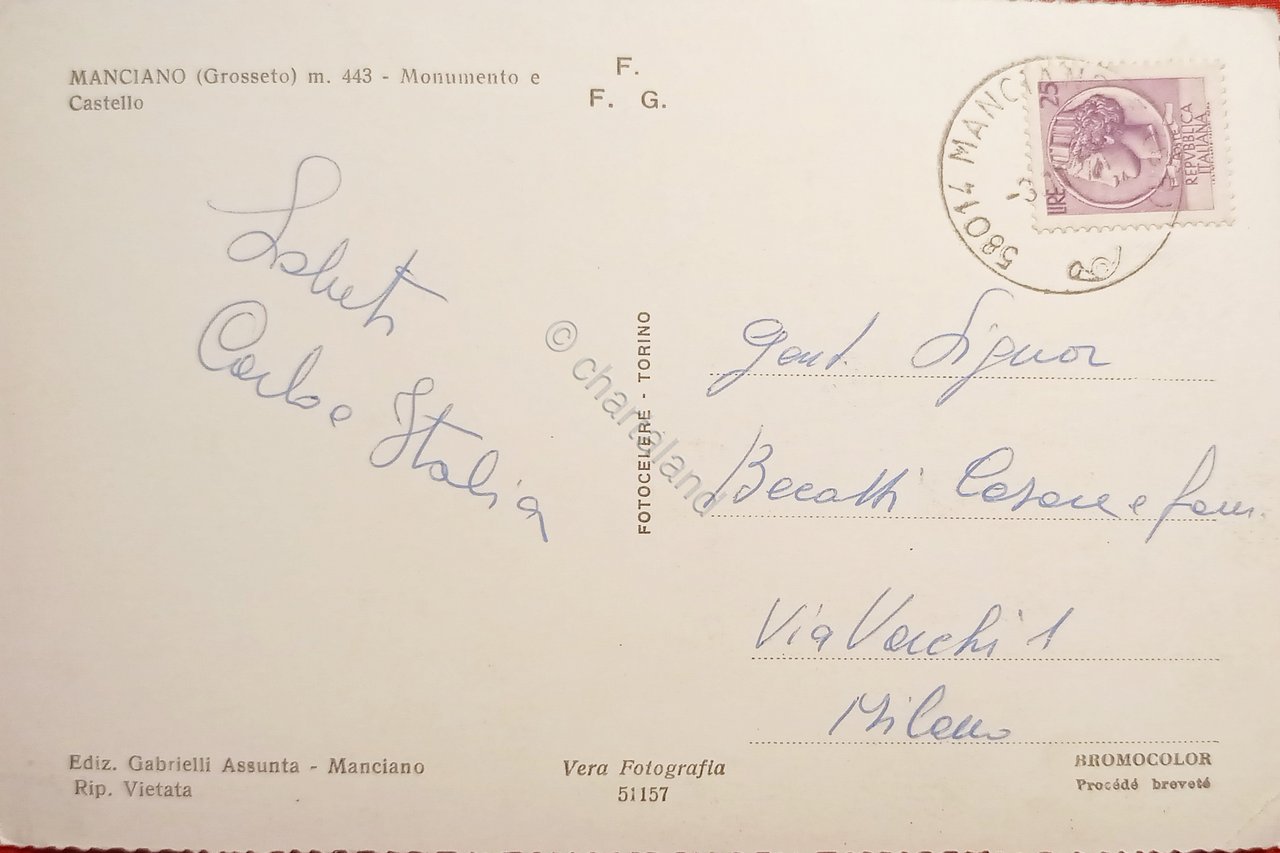 MANCIANO (Grosseto) m. 443 - Monumento e
Castello
F.
F. G.
58014 MANCIANO
LIRE 25
POSTE
REPVBBLICA
ITALIANA
Saluti
Carlo e Italia
© chartaland
FOTOCELERE - TORINO
Gent. Signor
Becatti Cesare e fam.
Via Varchi 1
Milano
Ediz. Gabrielli Assunta - Manciano
Rip. Vietata
Vera Fotografia
51157
BROMOCOLOR
Procédé breveté